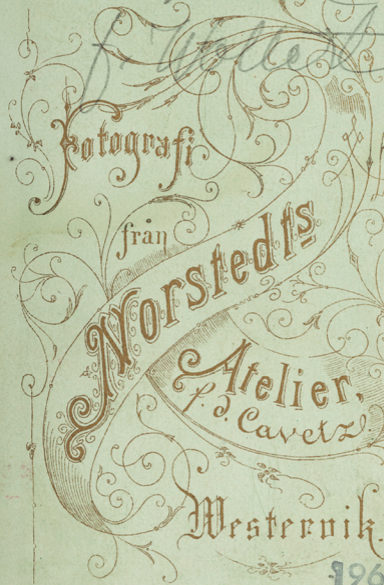 f. Wollert
Fotografi
från
Norstedts
Atelier,
f. d. Cavetz.
Westervik.
196